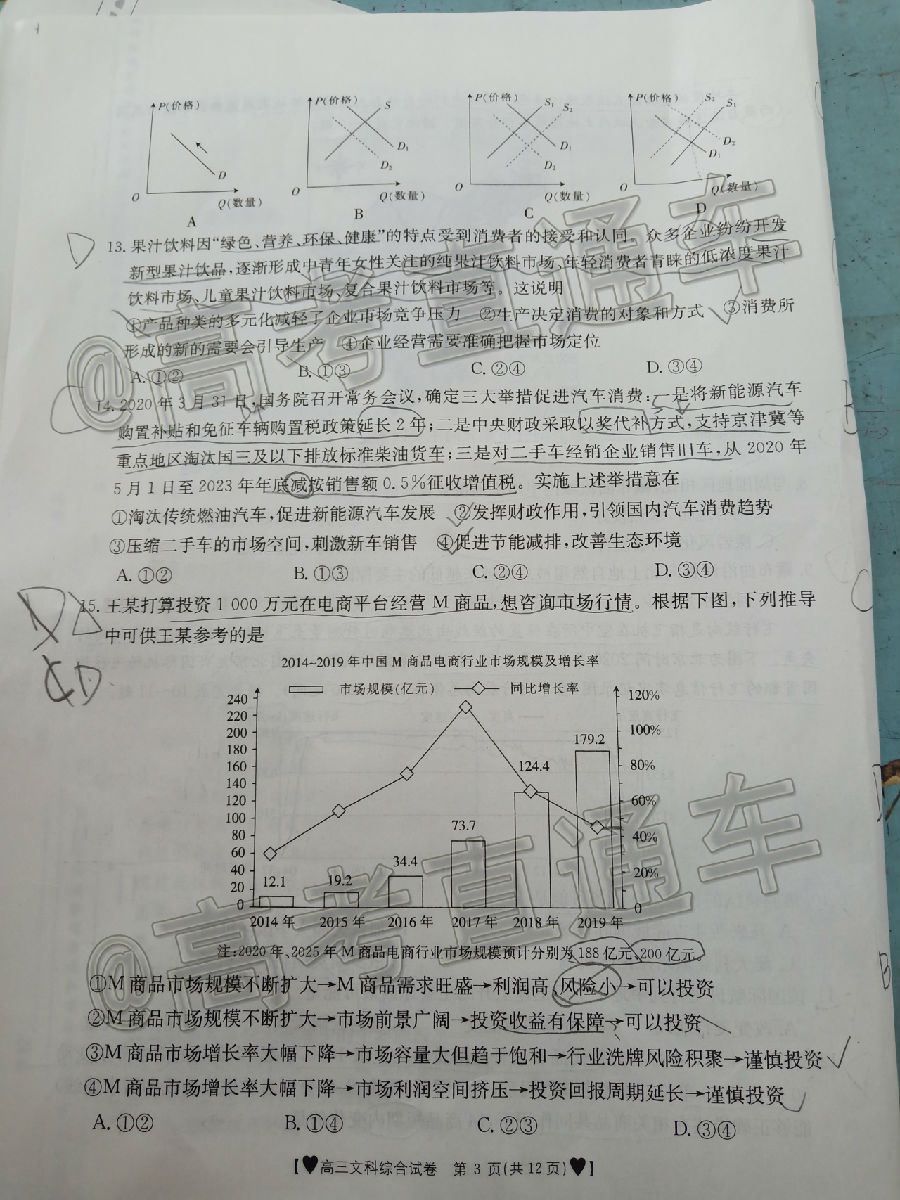 P(价格) P(价格) P(价格) P(价格)
S S₁ S₂ S₂ S₁
D D₁ D₂ D₁ D₂ D₁ D₂
O Q(数量) O Q(数量) O Q(数量) O Q(数量)
A B C D
D 13.果汁饮料因“绿色、营养、环保、健康”的特点受到消费者的接受和认同。众多企业纷纷开发
新型果汁饮品,逐渐形成中青年女性关注的纯果汁饮料市场、年轻消费者青睐的低浓度果汁
饮料市场、儿童果汁饮料市场、复合果汁饮料市场等。这说明
①产品种类的多元化减轻了企业市场竞争压力 ②生产决定消费的对象和方式 ③消费所
形成的新的需要会引导生产 ④企业经营需要准确把握市场定位
A.①② B.①③ C.②④ D.③④
14.2020年3月31日,国务院召开常务会议,确定三大举措促进汽车消费:一是将新能源汽车
购置补贴和免征车辆购置税政策延长2年;二是中央财政采取以奖代补方式,支持京津冀等
重点地区淘汰国三及以下排放标准柴油货车;三是对二手车经销企业销售旧车,从2020年
5月1日至2023年年底减按销售额0.5%征收增值税。实施上述举措意在
①淘汰传统燃油汽车,促进新能源汽车发展 ②发挥财政作用,引领国内汽车消费趋势
③压缩二手车的市场空间,刺激新车销售 ④促进节能减排,改善生态环境
A.①② B.①③ C.②④ D.③④
15.王某打算投资1 000万元在电商平台经营M商品,想咨询市场行情。根据下图,下列推导
中可供王某参考的是
2014-2019年中国M商品电商行业市场规模及增长率
市场规模(亿元) 同比增长率
240 120%
220
200 100%
180 179.2
160 80%
140 124.4
120 60%
100
80 73.7 40%
60
40 34.4 20%
20 12.1 19.2
0 0
2014年 2015年 2016年 2017年 2018年 2019年
注:2020年、2025年M商品电商行业市场规模预计分别为188亿元、200亿元
①M商品市场规模不断扩大→M商品需求旺盛→利润高,风险小→可以投资
②M商品市场规模不断扩大→市场前景广阔→投资收益有保障→可以投资
③M商品市场增长率大幅下降→市场容量大但趋于饱和→行业洗牌风险积聚→谨慎投资
④M商品市场增长率大幅下降→市场利润空间挤压→投资回报周期延长→谨慎投资
A.①② B.①④ C.②③ D.③④
【♥高三文科综合试卷 第3页(共12页)♥】
@高考直通车
@高考直通车